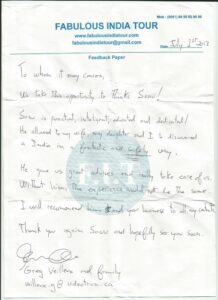 Mob : (0091) 99 50 60 90 66
FABULOUS INDIA TOUR
www.fabulousindiatour.com
fabulousindiatour@gmail.com
Date: July 1st 2013
Feedback Paper
To whom it may concern,
We take this opportunity to thank Sonu!
Sonu is punctual, intelligent, educated and dedicated!
He allowed to my wife, my daughter and I to discovered
a India in a fantastic and safety way.
He gave us great advices and really take care of us.
Without him, the experience would not be the same
I will recommend him and your business to all my contacts
Thank you again Sonu and hopefully see you soon.
Greg Veilleux and family
veilleux.g@videotron.ca